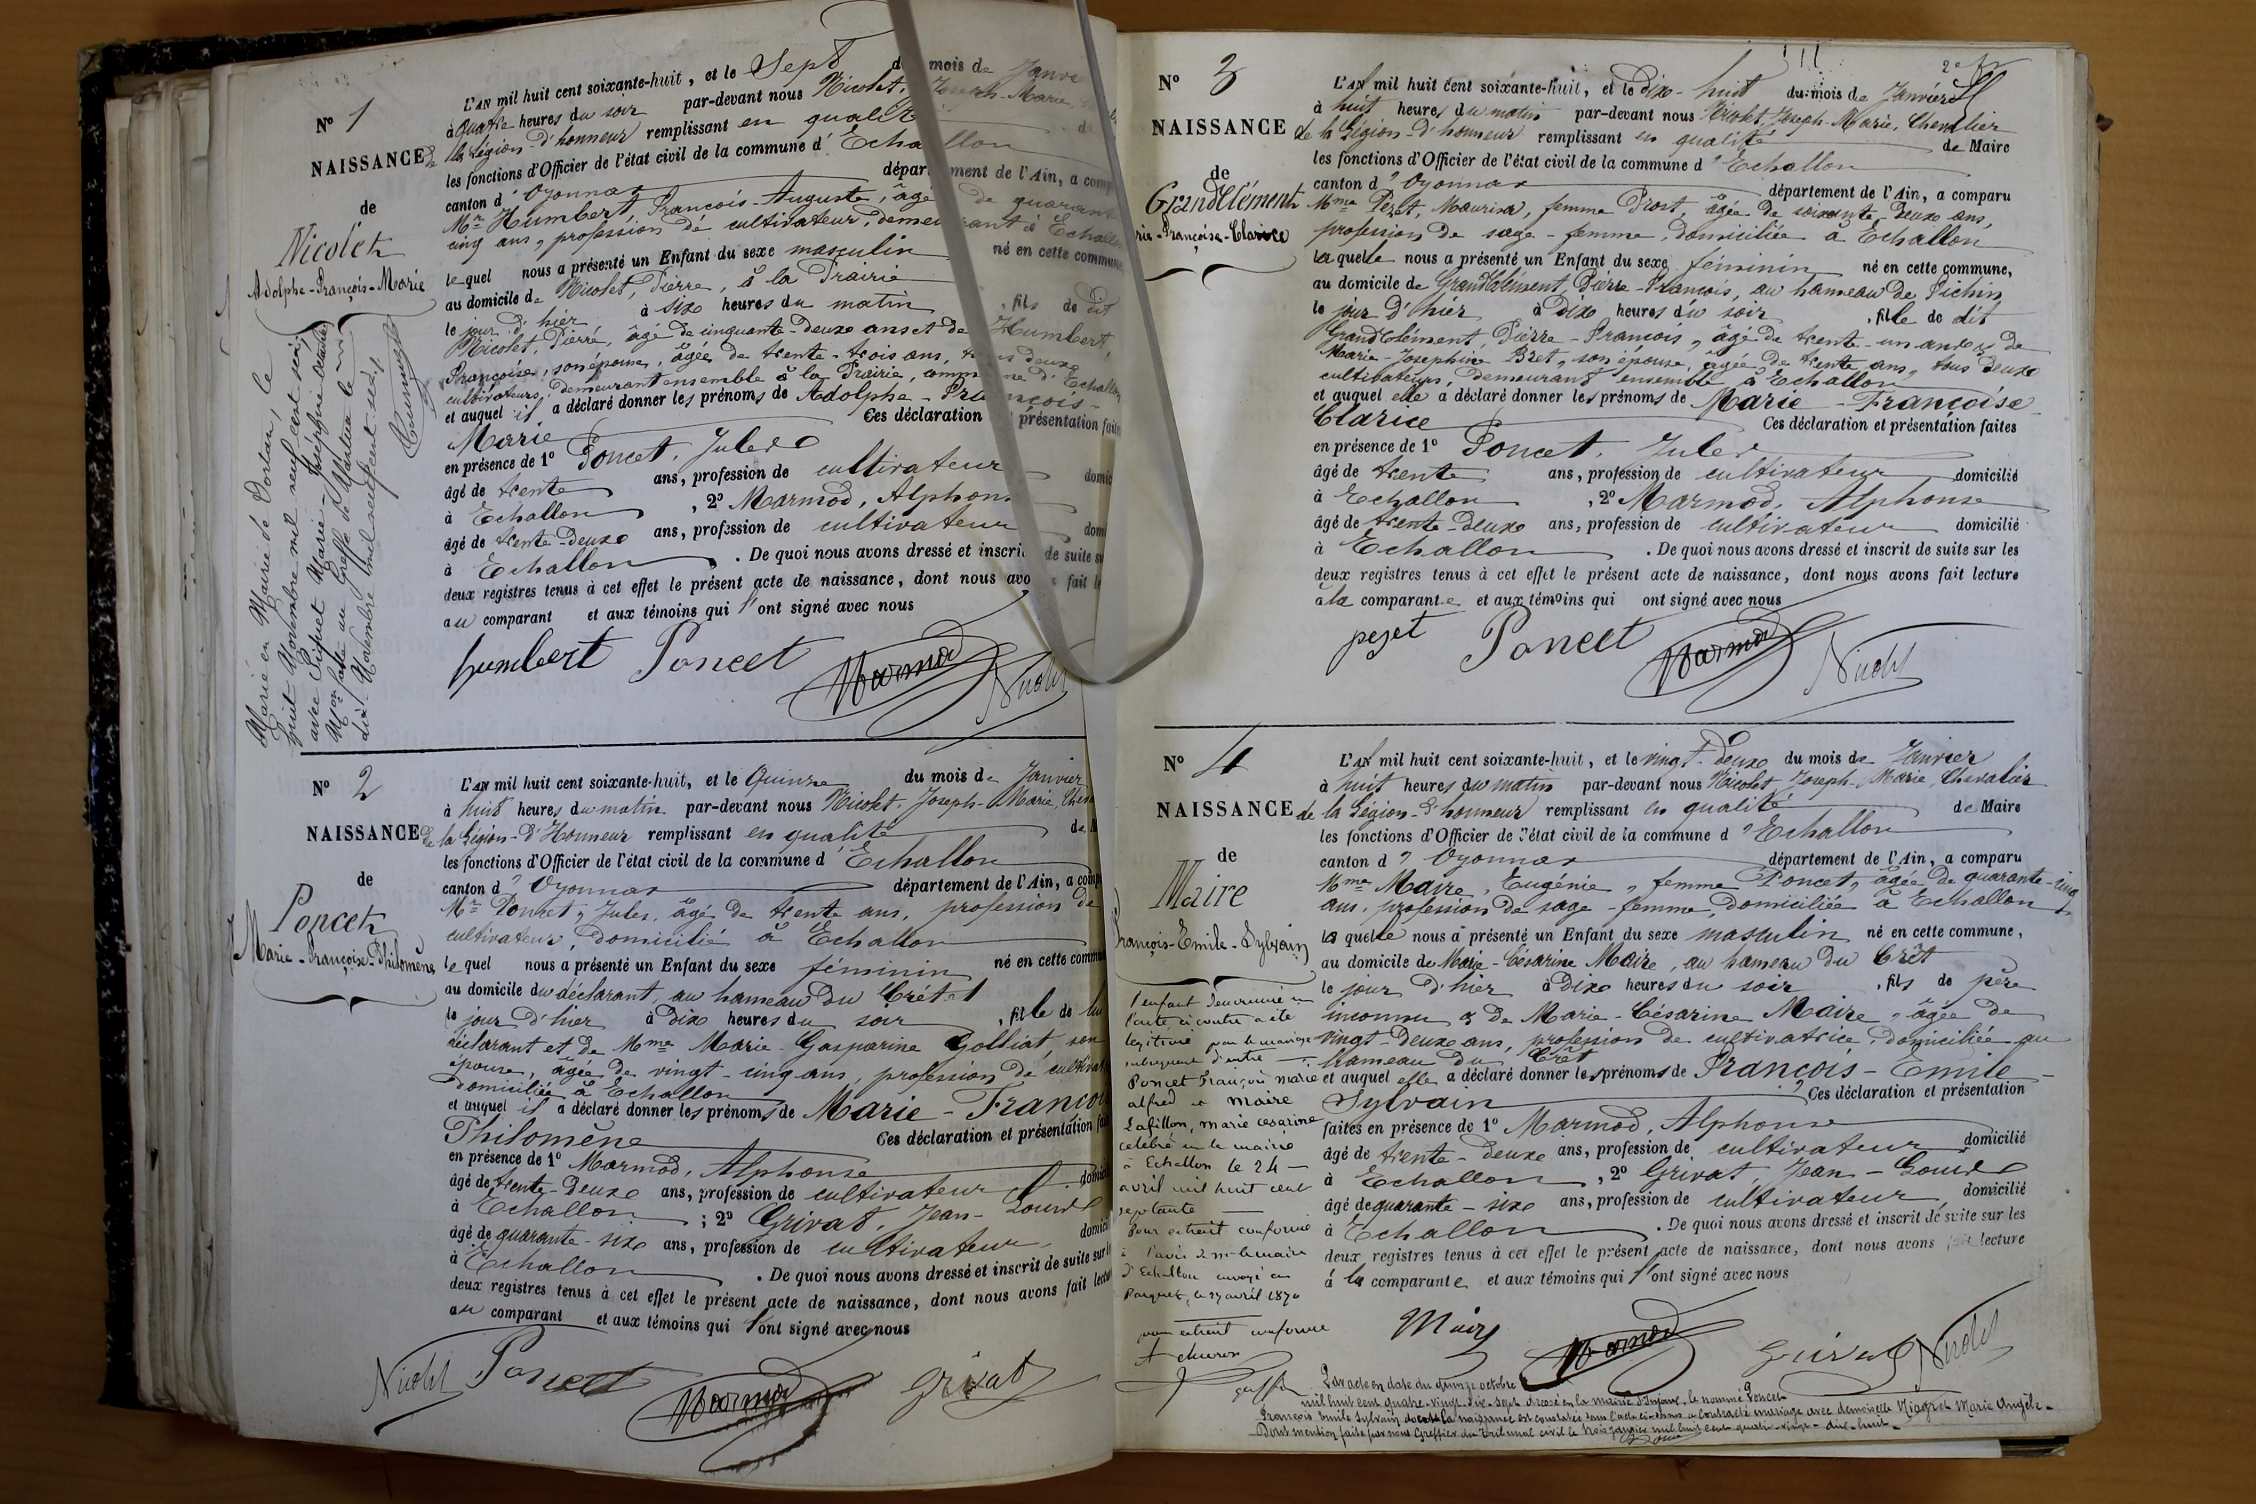 N° 1
NAISSANCE
de
Nicolet
Adolphe-François-Marie
L'AN mil huit cent soixante-huit, et le Sept du mois de Janvier
à quatre heures du soir par-devant nous Nicolet, Joseph-Marie
de la Légion d'honneur remplissant en qualité de
les fonctions d'Officier de l'état civil de la commune d'Echallon
canton d'Oyonnax département de l'Ain, a comparu
Mr Humbert, François-Auguste, âgé de quarante
cinq ans, profession de cultivateur, demeurant à Echallon
lequel nous a présenté un Enfant du sexe masculin né en cette commune,
au domicile de Nicolet, Pierre, à la Prairie
le jour d'hier à six heures du matin, fils de dit
Nicolet, Pierre, âgé de cinquante-deux ans et de Humbert,
Françoise, son épouse, âgée de trente-trois ans, tous deux
cultivateurs, demeurant ensemble à la Prairie, commune d'Echallon
et auquel il a déclaré donner les prénoms de Adolphe-François-
Marie Ces déclaration présentation faites
en présence de 1° Poncet, Jules
âgé de trente ans, profession de cultivateur
à Echallon, 2° Marmod, Alphonse
âgé de trente-deux ans, profession de cultivateur
à Echallon. De quoi nous avons dressé et inscrit de suite sur
deux registres tenus à cet effet le présent acte de naissance, dont nous avons fait
au comparant et aux témoins qui l'ont signé avec nous
humbert Poncet Marmod Nicolet
Marié en Mairie de Dortan, le
huit Novembre mil neuf cent seize
avec Piquet Marie-Joséphine
Mon faite au Greffe de Nantua le
dix Novembre mil neuf cent seize
N° 2
NAISSANCE
de
Poncet
Marie-Françoise-Philomène
L'AN mil huit cent soixante-huit, et le Quinze du mois de Janvier
à huit heures du matin par-devant nous Nicolet, Joseph-Marie,
de la Légion-d'Honneur remplissant en qualité
les fonctions d'Officier de l'état civil de la commune d'Echallon
canton d'Oyonnax département de l'Ain, a comparu
Mr Poncet, Jules, âgé de trente ans, profession de
cultivateur, domicilié à Echallon
lequel nous a présenté un Enfant du sexe féminin né en cette commune
au domicile du déclarant, au hameau du Crétet
le jour d'hier à dix heures du soir, fille de lui
déclarant et de Mme Marie-Gasparine Golliat son
épouse, âgée de vingt-cinq ans, profession de
domiciliée à Echallon
et auquel il a déclaré donner les prénoms de Marie-Françoise
Philomène Ces déclaration et présentation
en présence de 1° Marmod, Alphonse
âgé de trente-deux ans, profession de cultivateur
à Echallon; 2° Grivat, Jean-Louis
âgé de quarante-six ans, profession de cultivateur
à Echallon. De quoi nous avons dressé et inscrit de suite sur
deux registres tenus à cet effet le présent acte de naissance, dont nous avons fait lecture
au comparant et aux témoins qui l'ont signé avec nous
Nicolet Poncet Marmod grivat
N° 3
NAISSANCE
de
GrandClément
Françoise-Clarice
L'AN mil huit cent soixante-huit, et le dix-huit du mois de Janvier
à huit heures du matin par-devant nous Nicolet, Joseph-Marie, Chevalier
de la Légion-d'honneur remplissant en qualité de Maire
les fonctions d'Officier de l'état civil de la commune d'Echallon
canton d'Oyonnax département de l'Ain, a comparu
Mme Pezet, femme Prost, âgée de soixante-deux ans,
profession de sage-femme, domiciliée à Echallon
laquelle nous a présenté un Enfant du sexe féminin né en cette commune,
au domicile de GrandClément, Pierre-François, au hameau de Pichin
le jour d'hier à dix heures du soir, fille de dit
GrandClément, Pierre-François, âgé de trente-un ans & de
Marie-Josephine Bret, son épouse, âgée de trente ans, tous deux
cultivateurs, demeurant ensemble à Echallon
et auquel elle a déclaré donner les prénoms de Marie-Françoise
Clarice Ces déclaration et présentation faites
en présence de 1° Poncet, Jules
âgé de trente ans, profession de cultivateur domicilié
à Echallon, 2° Marmod, Alphonse
âgé de trente-deux ans, profession de cultivateur domicilié
à Echallon. De quoi nous avons dressé et inscrit de suite sur les
deux registres tenus à cet effet le présent acte de naissance, dont nous avons fait lecture
à la comparante et aux témoins qui ont signé avec nous
pezet Poncet Marmod Nicolet
N° 4
NAISSANCE
de
Maire
François-Emile-Sylvain
L'AN mil huit cent soixante-huit, et le vingt-deux du mois de Janvier
à huit heures du matin par-devant nous Nicolet, Joseph-Marie, Chevalier
de la Légion-d'honneur remplissant en qualité de Maire
les fonctions d'Officier de l'état civil de la commune d'Echallon
canton d'Oyonnax département de l'Ain, a comparu
Mme Maire, Eugénie, femme Poncet, âgée de quarante-cinq
ans, profession de sage-femme, domiciliée à Echallon
laquelle nous a présenté un Enfant du sexe masculin né en cette commune,
au domicile de Marie-Césarine Maire, au hameau du Crêt
le jour d'hier à dix heures du soir, fils de père
inconnu & de Marie-Césarine Maire, âgée de
vingt-deux ans, profession de cultivatrice, domiciliée au
hameau du Crêt
et auquel elle a déclaré donner les prénoms de François-Emile-
Sylvain Ces déclaration et présentation
faites en présence de 1° Marmod, Alphonse
âgé de trente-deux ans, profession de cultivateur domicilié
à Echallon, 2° Grivat, Jean-Louis
âgé de quarante-six ans, profession de cultivateur domicilié
à Echallon. De quoi nous avons dressé et inscrit de suite sur les
deux registres tenus à cet effet le présent acte de naissance, dont nous avons fait lecture
à la comparante et aux témoins qui l'ont signé avec nous
Maire Marmod Grivat Nicolet
l'enfant dénommé en
l'acte ci contre a été
légitimé par le mariage
subséquent d'entre
Poncet François marie
alfred et Maire
Lafillon, marie césarine
célébré en la mairie
à Echallon le 24
avril mil huit cent
septante
Pour extrait conforme
à l'avis de mr le maire
d'Echallon envoyé au
Parquet, le 27 avril 1870
pour extrait conforme
Par acte en date du quinze octobre
mil huit cent quatre-vingt-dix-sept dressé en la mairie d'Izernore, le nommé Poncet
François Emile Sylvain dont la naissance est constatée dans l'acte ci-dessus a contracté mariage avec demoiselle Niogret Marie Angèle-
Dont mention faite par nous Greffier du Tribunal civil le trois janvier mil huit cent quatre-vingt-dix-huit-